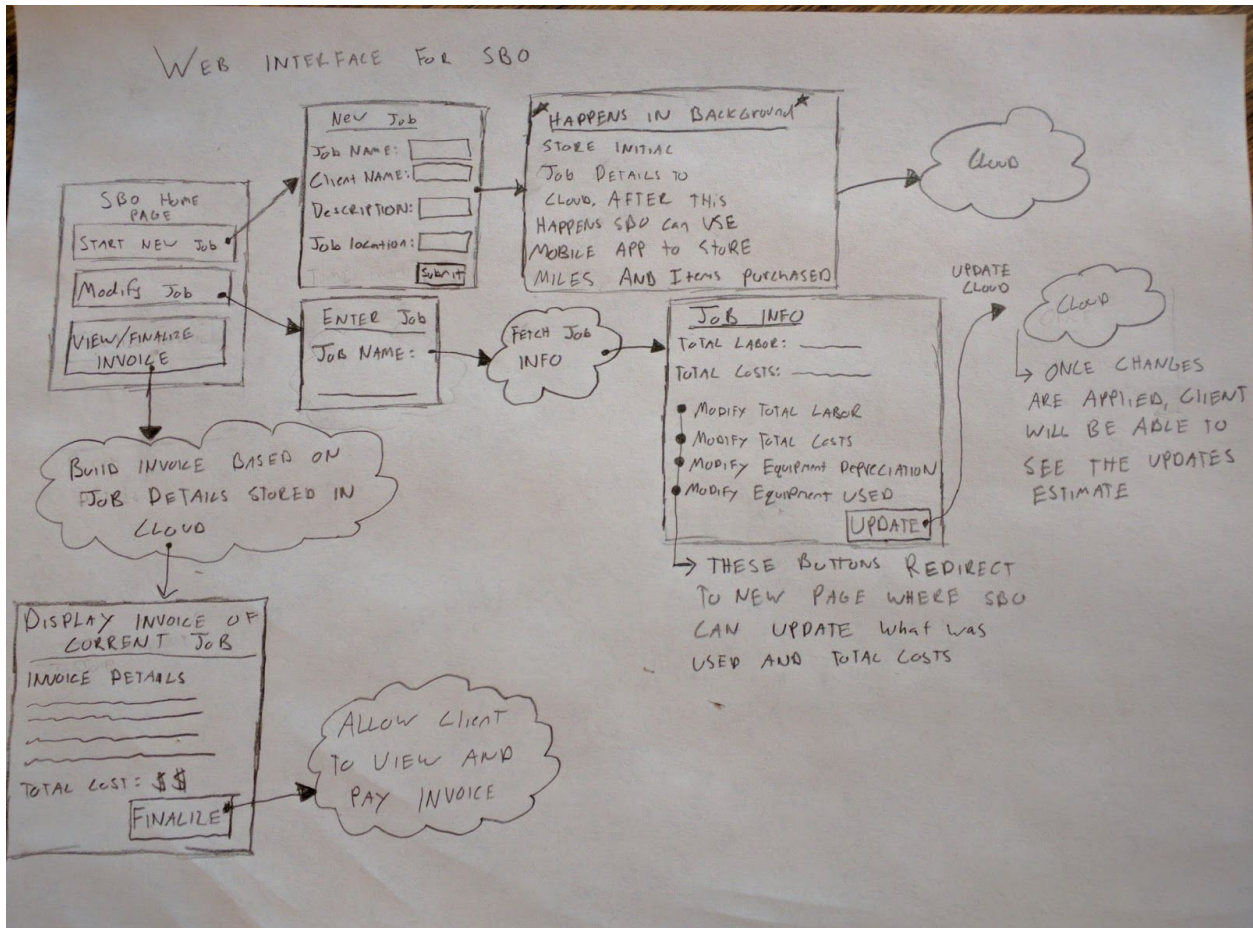 WEB INTERFACE FOR SBO
SBO HOME
PAGE
START NEW Job
Modify Job
VIEW/FINALIZE
INVOICE
New Job
Job NAME:
Client NAME:
DESCRIPTION:
Job location:
Submit
*HAPPENS IN BACKGROUND*
STORE INITIAL
JOB DETAILS TO
CLOUD. AFTER THIS
HAPPENS SBO CAN USE
MOBILE APP TO STORE
MILES AND Items PURCHASED
CLOUD
ENTER Job
JOB NAME:
FETCH JOB
INFO
JOB INFO
TOTAL LABOR:
TOTAL COSTS:
MODIFY TOTAL LABOR
MODIFY TOTAL COSTS
MODIFY Equipment DEPRECIATION
MODIFY Equipment USED
UPDATE
UPDATE
CLOUD
CLOUD
ONCE CHANGES
ARE APPLIED, CLIENT
WILL BE ABLE TO
SEE THE UPDATES
ESTIMATE
THESE BUTTONS REDIRECT
TO NEW PAGE WHERE SBO
CAN UPDATE What was
USED AND TOTAL COSTS
BUILD INVOICE BASED ON
JOB DETAILS STORED IN
CLOUD
DISPLAY INVOICE OF
CURRENT JOB
INVOICE DETAILS
TOTAL COST: $$
FINALIZE
ALLOW Client
TO VIEW AND
PAY INVOICE